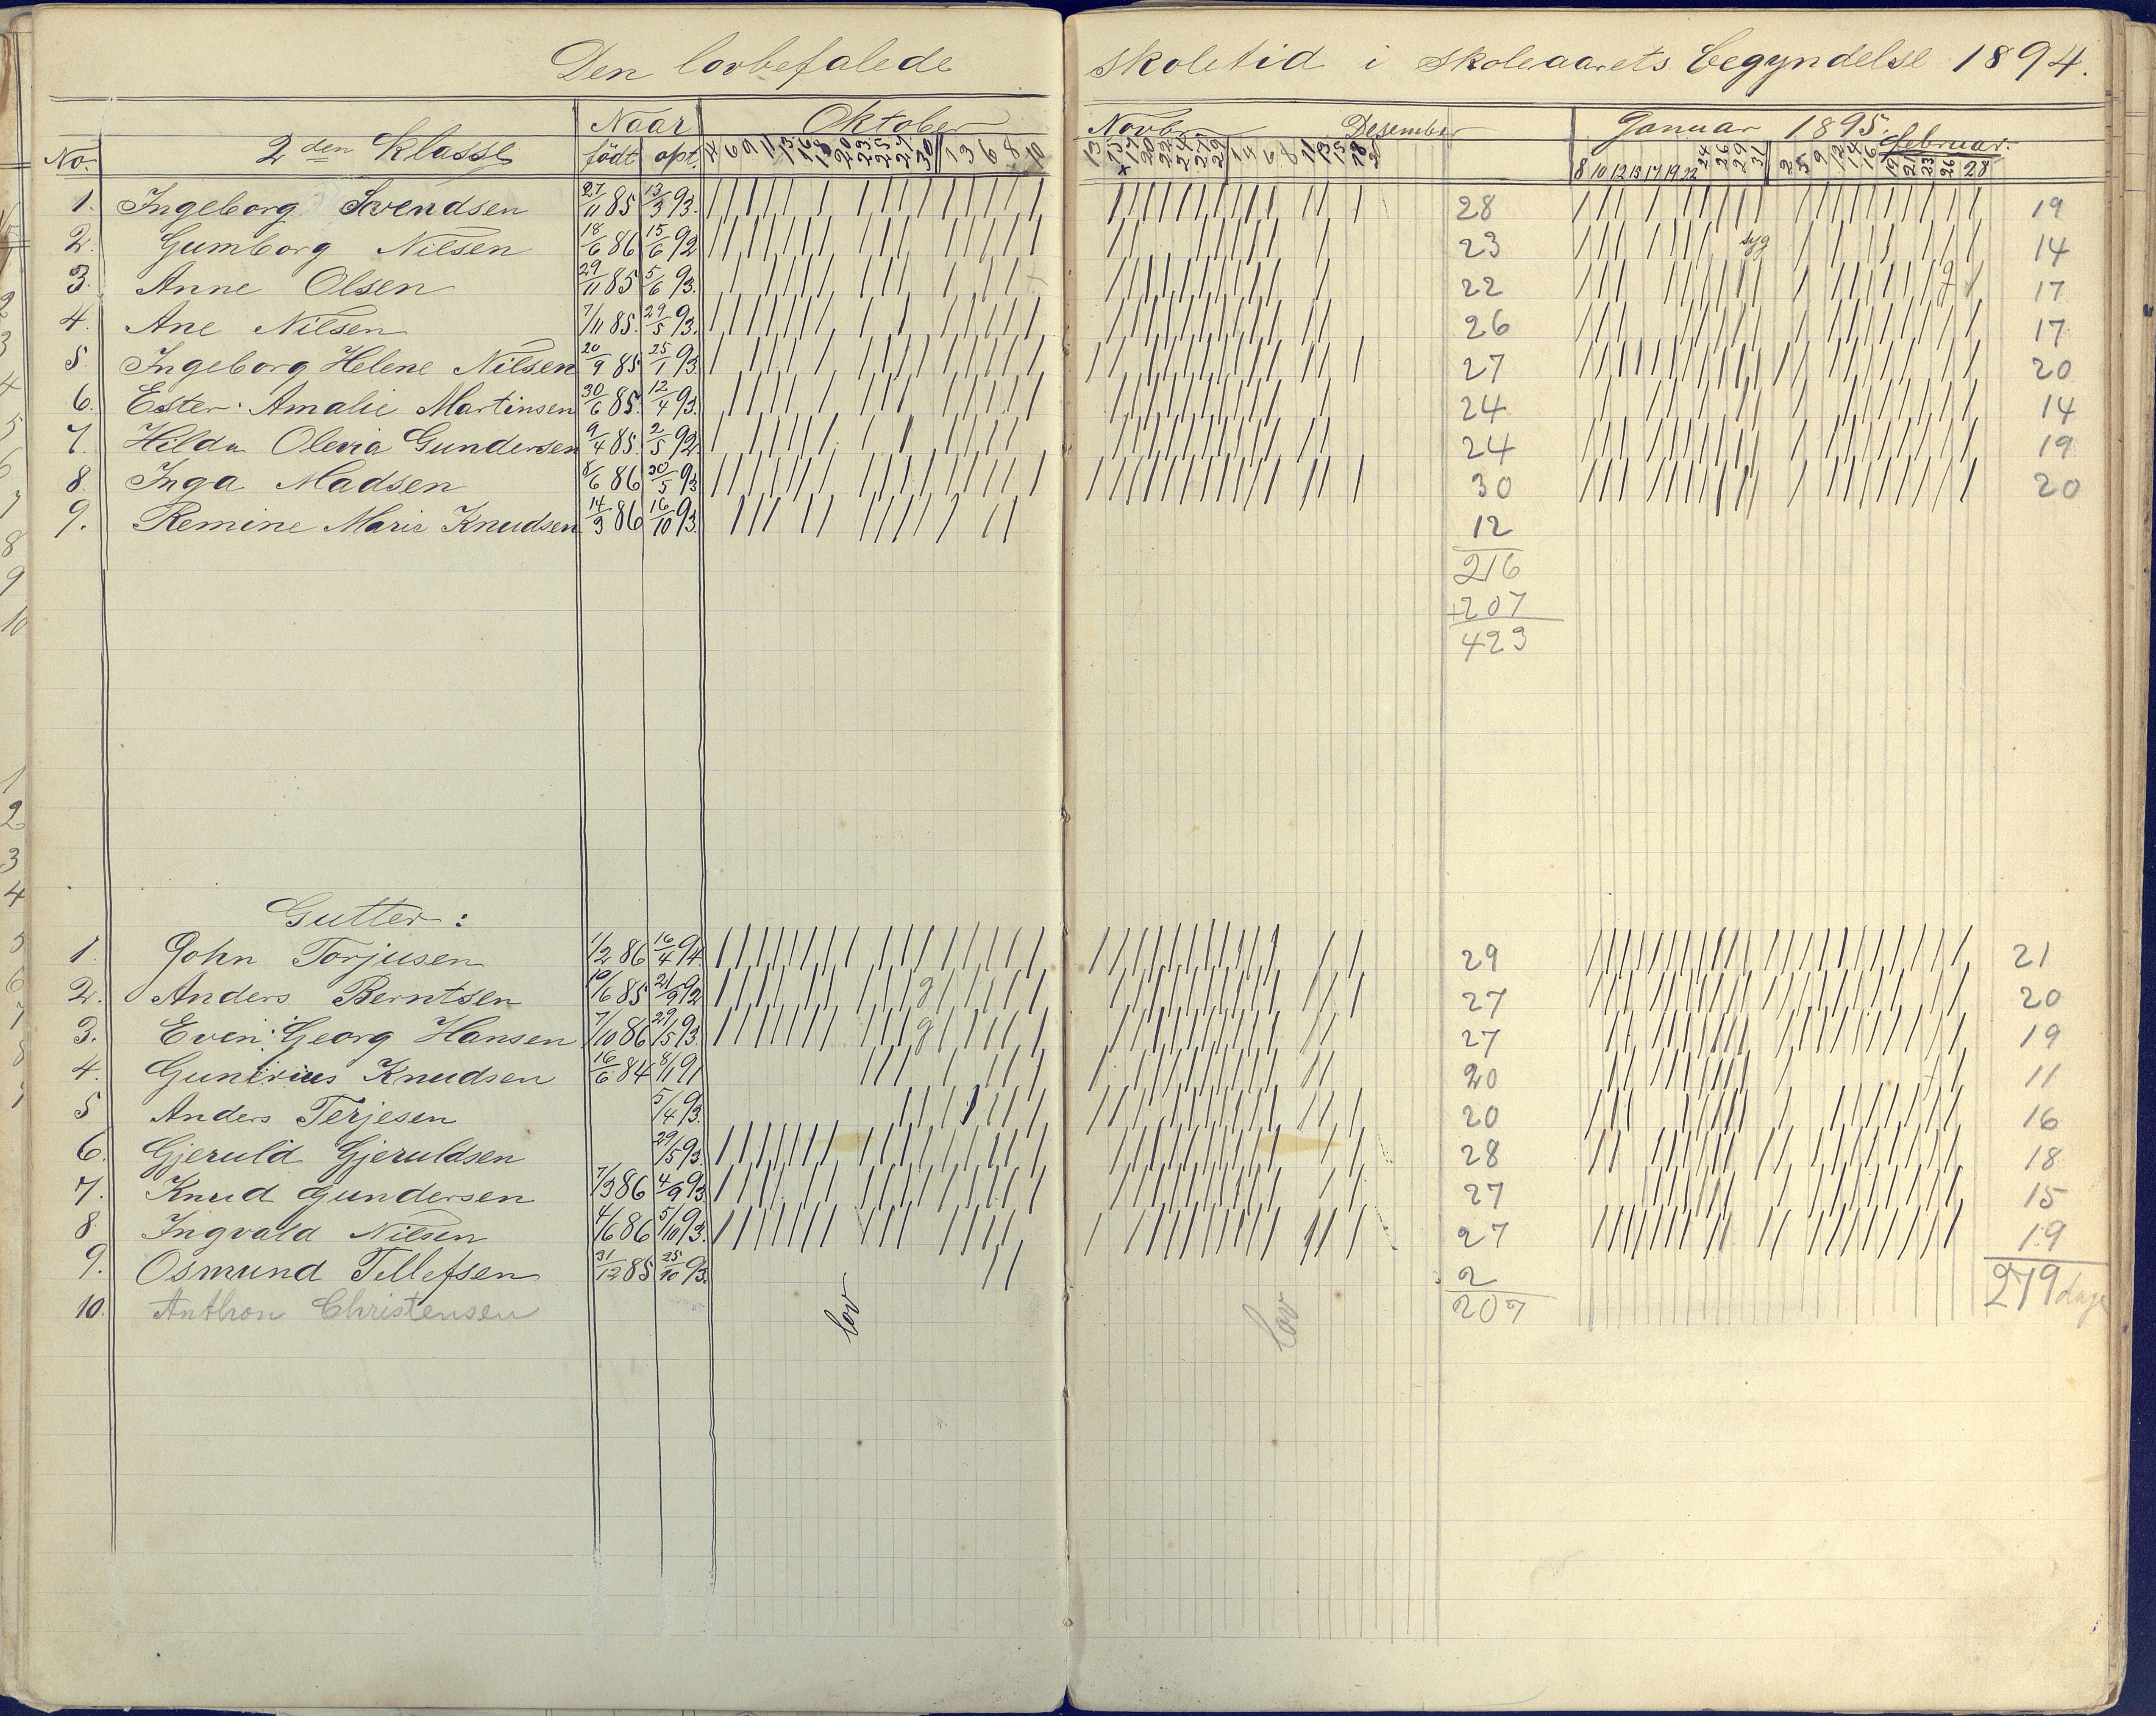 Den lovbefalede skoletid i skoleaarets begyndelse 1894.
No. 2den Klasse Naar født opt. Oktober Novbr Desember Januar 1895. Februar.
4 6 9 11 13 16 18 20 23 25 27 30 1 3 6 8 10 13 15 17 20 22 24 27 29 1 4 6 8 11 13 15 18 8 10 12 15 17 19 22 24 26 29 31 2 5 9 12 14 16 19 21 23 26 28
1. Ingeborg Svendsen 27/11 85 13/3 93. 28 19
2. Gumborg Nilsen 18/6 86 15/6 92 23 syg 14
3. Anne Olsen 29/11 85 5/6 93. 22 17
4. Ane Nilsen 7/11 85. 29/5 93. 26 17
5. Ingeborg Helene Nilsen 20/9 85 25/1 93 27 20
6. Ester Amalie Martinsen 30/6 85. 12/4 93. 24 14
7. Hilda Olevia Gundersen 9/4 85. 2/5 92. 24 19
8. Inga Madsen 8/6 86 30/5 93 30 20
9. Remine Marie Knudsen 14/3 86 16/10 93. 12
216
+207
423
Gutter:
1. John Torjusen 1/2 86 16/4 94. 29 21
2. Anders Berntsen 10/6 85 21/9 92 g 27 20
3. Even Georg Hansen 7/10 86 29/5 93. g 27 19
4. Gunerius Knudsen 16/6 84 8/11 91 20 11
5 Anders Terjesen 5/4 93. 20 16
6. Gjeruld Gjeruldsen 29/5 93. 28 18
7. Knud Gundersen 7/3 86 4/9 93 27 15
8 Ingvald Nilsen 4/6 86 5/10 93. 27 19
9. Osmund Tellefsen 31/12 85 25/10 93. 2 279 dage
10. Anthon Christensen lov lov 207